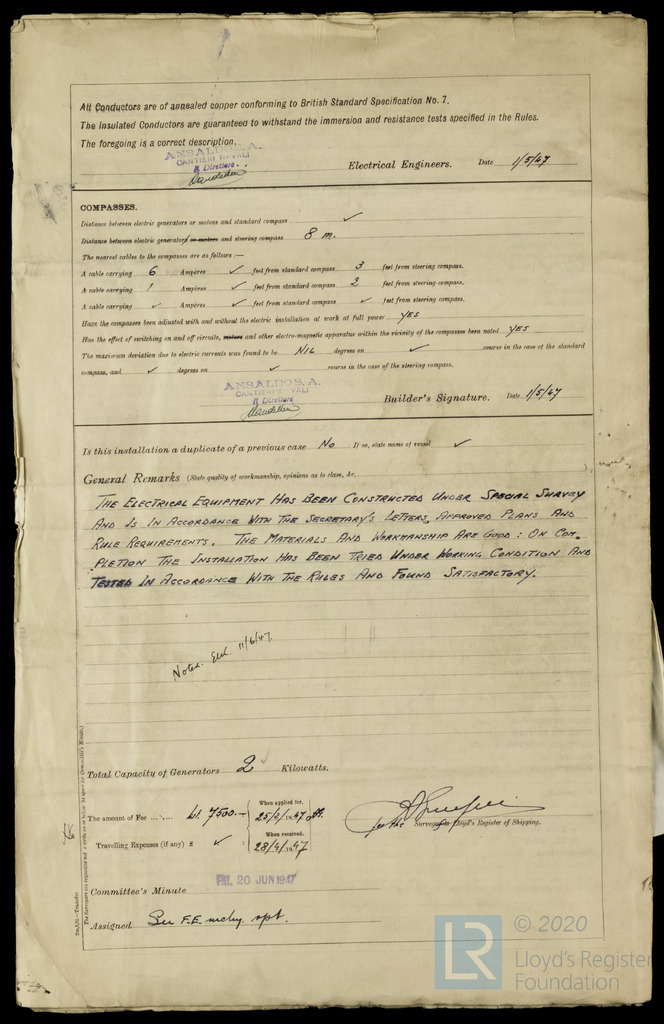 All Conductors are of annealed copper conforming to British Standard Specification No. 7.
The Insulated Conductors are guaranteed to withstand the immersion and resistance tests specified in the Rules.
The foregoing is a correct description.
ANSALDO S. A.
CANTIERI NAVALI
Il Direttore
Electrical Engineers. Date 1/5/47
COMPASSES.
Distance between electric generators or motors and standard compass ✓
Distance between electric generators or motors and steering compass 8 m.
The nearest cables to the compasses are as follows :—
A cable carrying 6 Ampères ✓ feet from standard compass 3 feet from steering compass.
A cable carrying 1 Ampères ✓ feet from standard compass 2 feet from steering compass.
A cable carrying ✓ Ampères ✓ feet from standard compass ✓ feet from steering compass.
Have the compasses been adjusted with and without the electric installation at work at full power YES
Has the effect of switching on and off circuits, motors and other electro-magnetic apparatus within the vicinity of the compasses been noted YES
The maximum deviation due to electric currents was found to be NIL degrees on ✓ course in the case of the standard
compass, and ✓ degrees on ✓ course in the case of the steering compass.
ANSALDO S. A.
CANTIERI NAVALI
Il Direttore
Builder's Signature. Date 1/5/47
Is this installation a duplicate of a previous case No If so, state name of vessel ✓
General Remarks (State quality of workmanship, opinions as to class, &c.)
THE ELECTRICAL EQUIPMENT HAS BEEN CONSTRUCTED UNDER SPECIAL SURVEY
AND IS IN ACCORDANCE WITH THE SECRETARY'S LETTERS, APPROVED PLANS AND
RULE REQUIREMENTS. THE MATERIALS AND WORKMANSHIP ARE GOOD : ON COM-
PLETION THE INSTALLATION HAS BEEN TRIED UNDER WORKING CONDITION AND
TESTED IN ACCORDANCE WITH THE RULES AND FOUND SATISFACTORY.
Noted. 11/6/47.
Total Capacity of Generators 2 ✓ Kilowatts.
The amount of Fee ... Lt. 7500.— When applied for, 25/2/1947
Travelling Expenses (if any) £ ✓ When received, 28/4/1947
for the Surveyor to Lloyd's Register of Shipping.
Committee's Minute FRI. 20 JUN 1947
Assigned See F.E. mchy. rpt.
The Surveyors are requested not to write on or below the space for Committee's Minute.
© 2020
LR
Lloyd's Register
Foundation